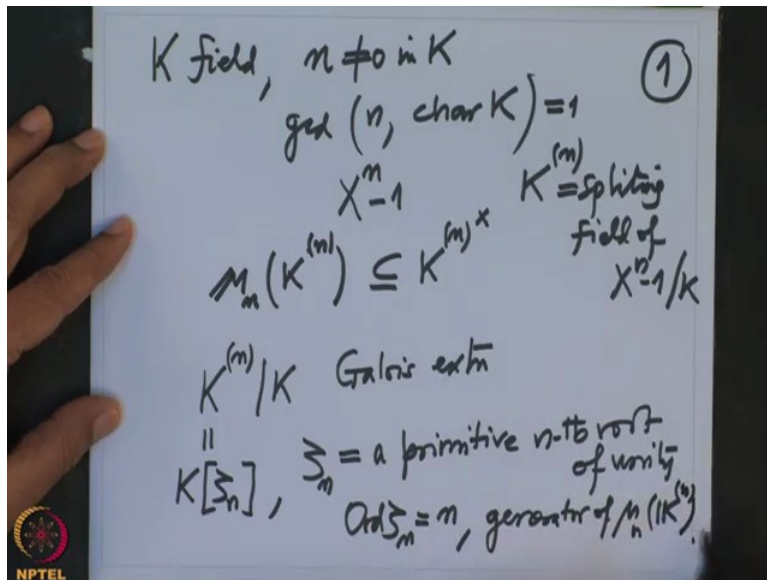 K field, n ≠ 0 in K
①
gcd (n, char K) = 1
Xⁿ-1
K⁽ⁿ⁾ = spliting
field of
Xⁿ-1/K
μₙ(K⁽ⁿ⁾) ⊆ K⁽ⁿ⁾ˣ
K⁽ⁿ⁾/K Galois extn
||
K[ζₙ], ζₙ = a primitive n-th root
of unity
Ord ζₙ = n, generator of μₙ(K⁽ⁿ⁾).
NPTEL